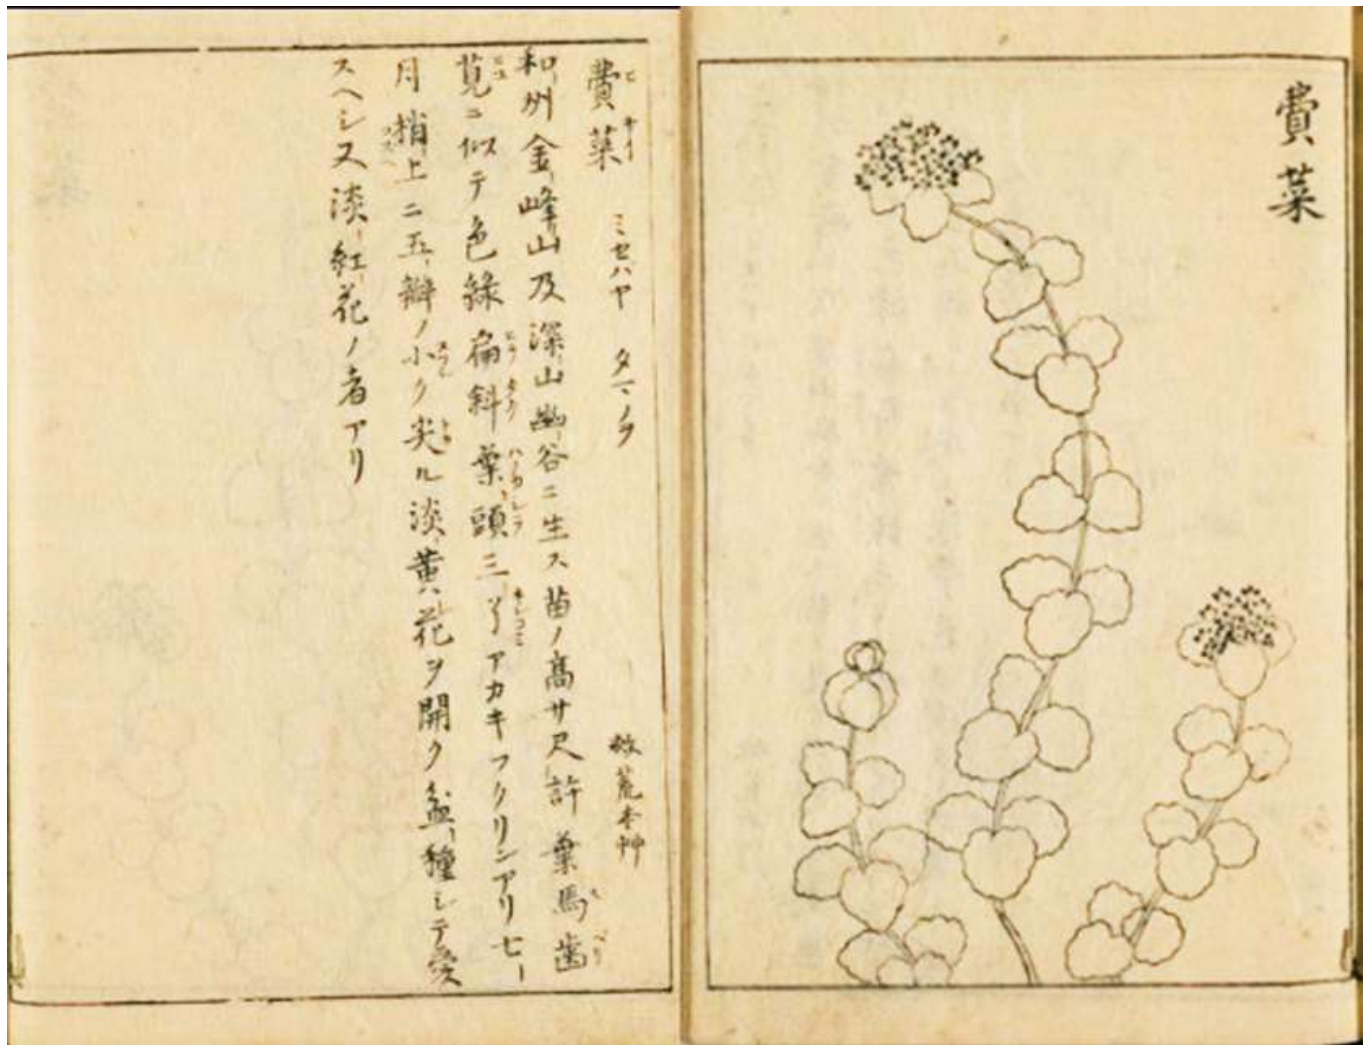 費菜
費菜 ミセハヤ タマノヲ 救荒本艸
和州金峰山及深山幽谷ニ生ス苗ノ高サ尺許葉馬歯
莧ニ似テ色緑扁斜葉頭三アカキフクリンアリ七
月梢上ニ五瓣ノ小ク尖ル淡黄花ヲ開ク盆種シテ愛
スヘシ又淡紅花ノ者アリ